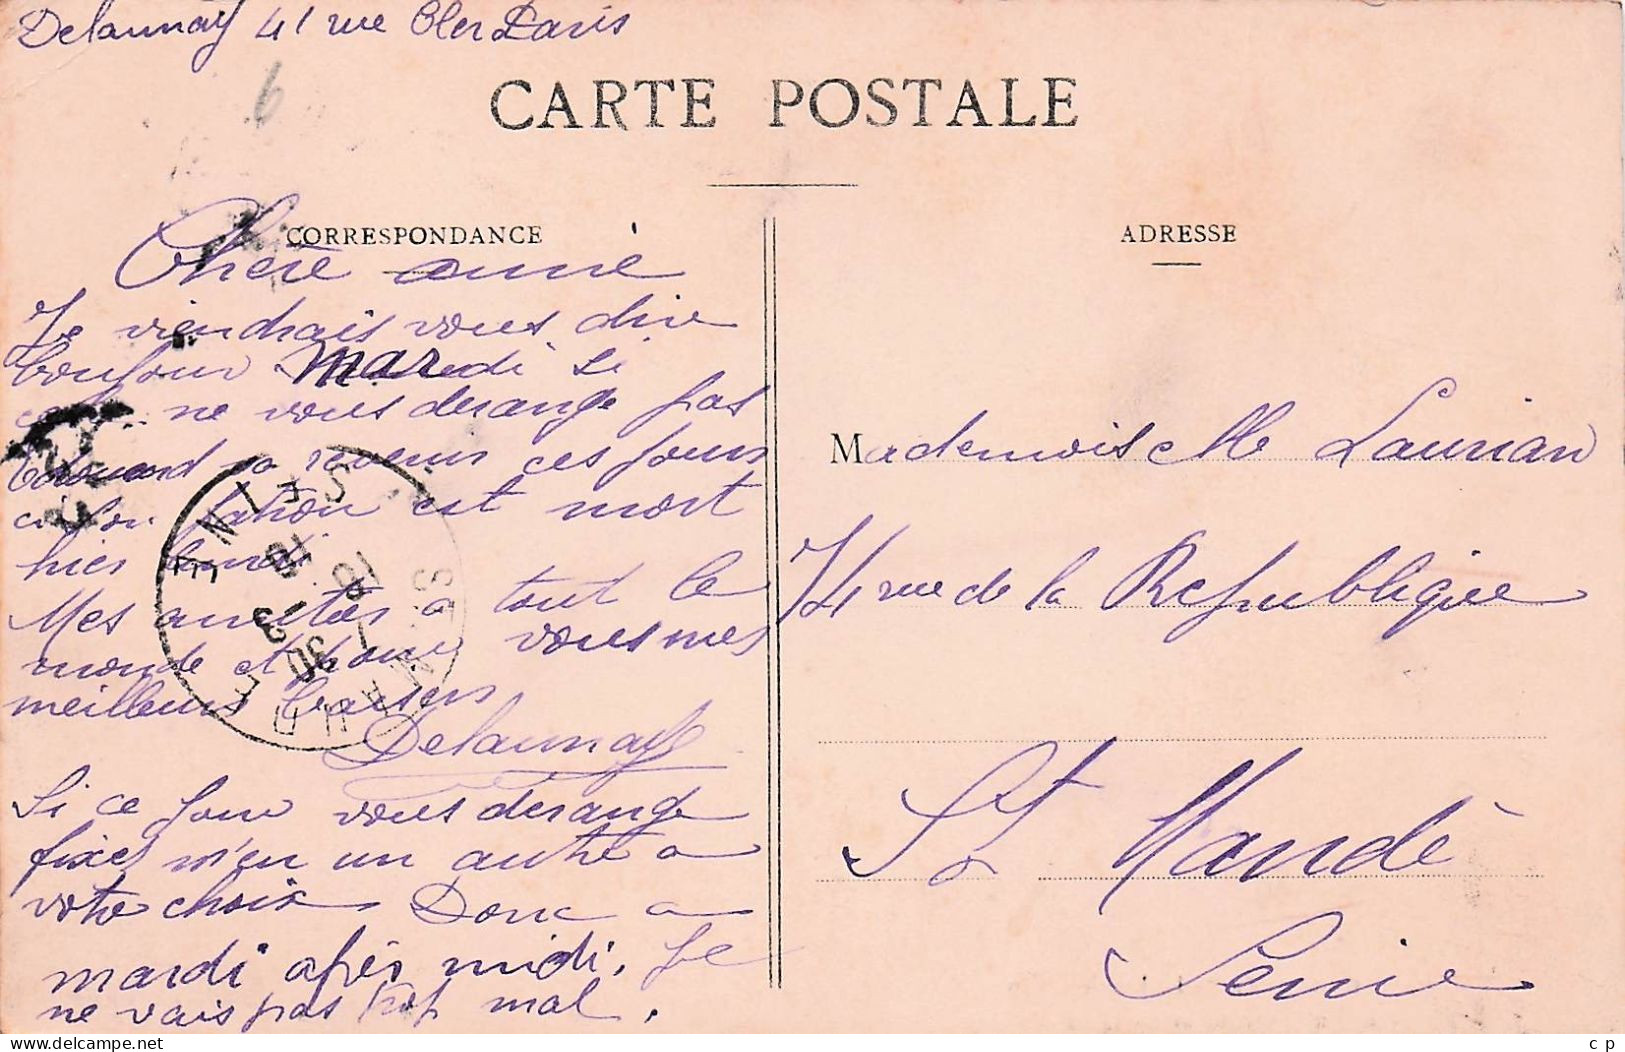 Delaunay 41 rue Cler Paris
6
CARTE POSTALE
CORRESPONDANCE
ADRESSE
Chère amie
Je viendrais vous dire
bonjour mardi si
ne vous derange pas
Edouard va revenir ces jours
ci son patron est mort
hier lundi.
Mes amitiés a tout le
monde et pour vous mes
meilleurs baisers
Delaunay
Si ce jour vous derange
fixez m'en un autre a
votre choix Donc a
mardi après midi. Je
ne vais pas trop mal.
Mademoiselle Laurian
74 rue de la Republique
St Mandé
Seine
ST MANDE
SEINE
7 30
delcampe.net
c p